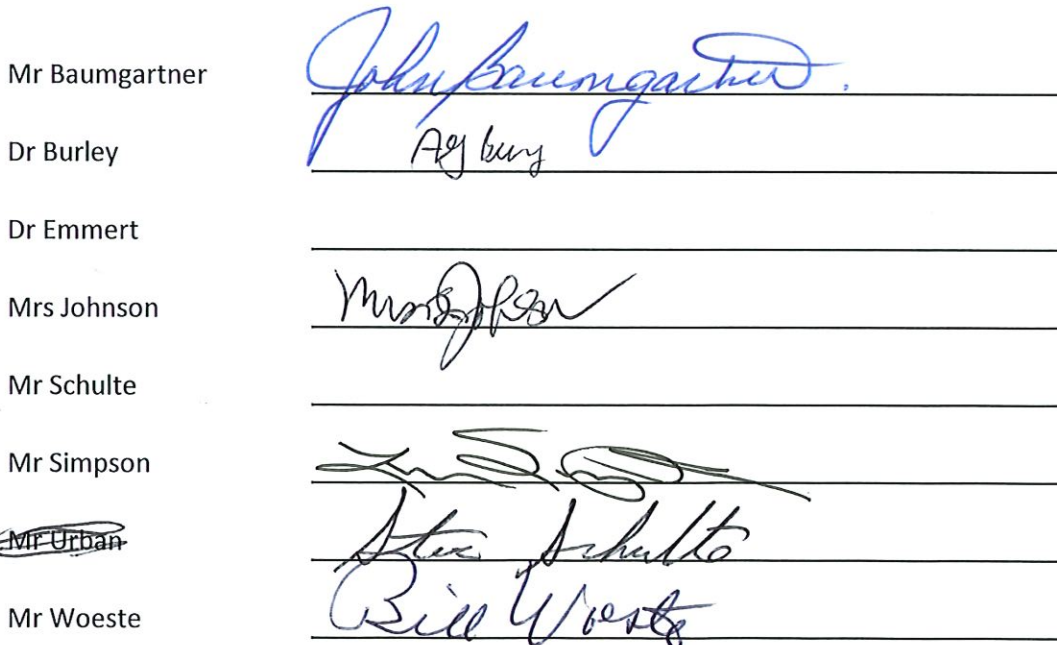 Mr Baumgartner John Baumgartner.
Dr Burley
Dr Emmert
Mrs Johnson
Mr Schulte
Mr Simpson
Mr Urban Steve Schulte
Mr Woeste Bill Woeste